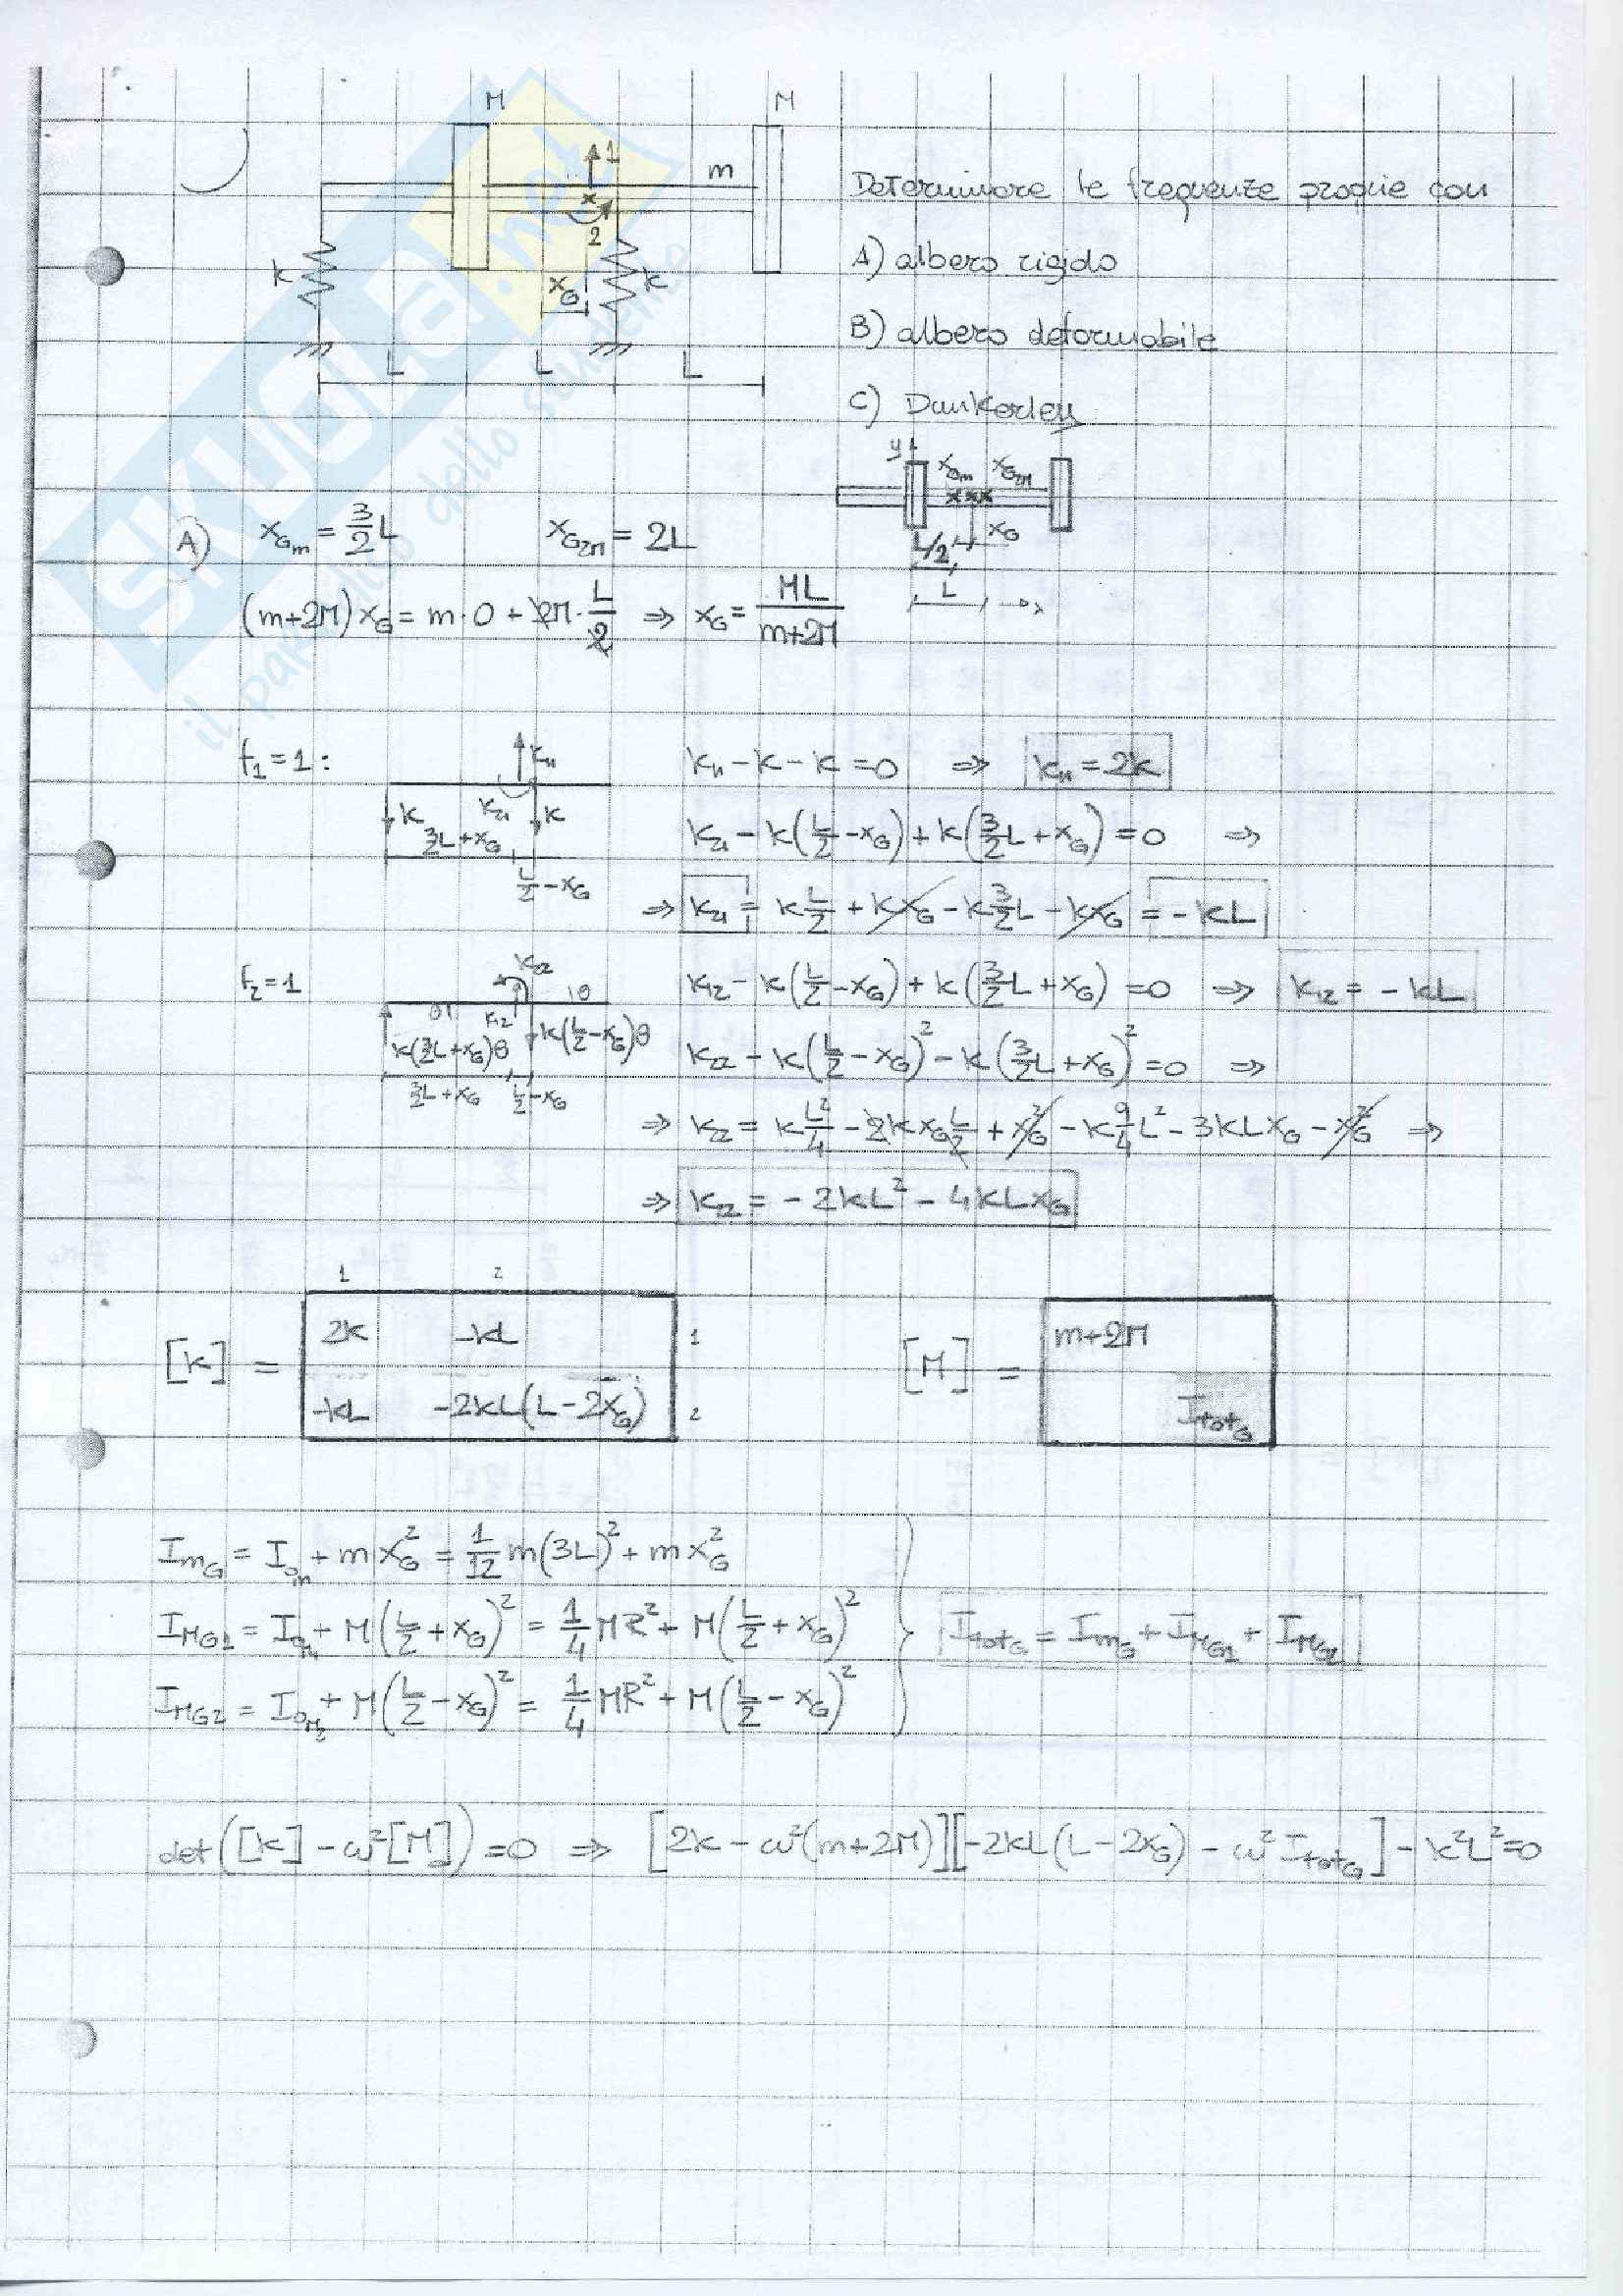 M M
1
m
x
2
k
x_G
k
L L L
Determinare le frequenze proprie con
A) albero rigido
B) albero deformabile
C) Dunkerley
y x_Gm x_G2M
x_G
L/2
L x
SKUOLA.net
il paradiso dello studente
A) x_Gm = 3/2 L x_G2M = 2L
(m+2M) x_G = m·0 + 2M·L/2 ⇒ x_G = ML/(m+2M)
f₁=1: k₁₁ k₁₁ - k - k = 0 ⇒ k₁₁ = 2k
k k₂₁ k
3/2L+x_G
L/2-x_G
k₂₁ - k(L/2 - x_G) + k(3/2L + x_G) = 0 ⇒
⇒ k₂₁ = kL/2 + kx_G - k3/2L - kx_G = -kL
f₂=1 k₂₂ k₁₂ - k(L/2 - x_G) + k(3/2L + x_G) = 0 ⇒ k₁₂ = -kL
θ k₁₂ θ
k(3/2L+x_G)θ k(L/2-x_G)θ
3/2L+x_G L/2-x_G
k₂₂ - k(L/2 - x_G)² - k(3/2L + x_G)² = 0 ⇒
⇒ k₂₂ = kL²/4 - 2kx_G L/2 + x_G² - k9/4L² - 3kLx_G - x_G² ⇒
⇒ k₂₂ = -2kL² - 4kLx_G
1 2
[K] = 2k -kL 1
-kL -2kL(L-2x_G) 2
[M] = m+2M
I_totG
I_mG = I_0m + m x_G² = 1/12 m(3L)² + m x_G²
I_MG1 = I_0M + M(L/2 + x_G)² = 1/4 MR² + M(L/2 + x_G)²
I_MG2 = I_0M2 + M(L/2 - x_G)² = 1/4 MR² + M(L/2 - x_G)²
I_totG = I_mG + I_MG1 + I_MG2
det([K] - ω²[M]) = 0 ⇒ [2k - ω²(m+2M)][-2kL(L-2x_G) - ω² I_totG] - k²L² = 0